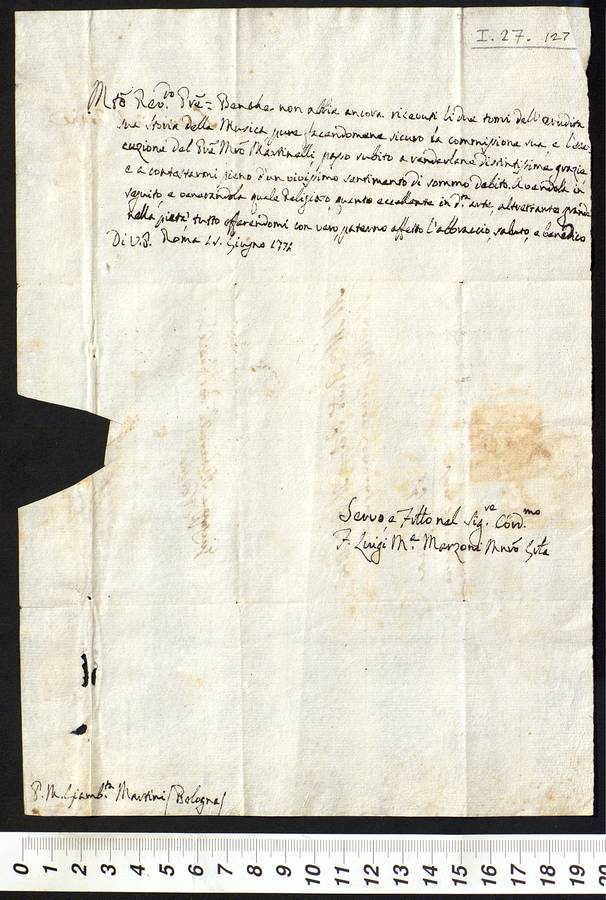 I. 27. 127
Mrõ Rev.do Prẽ = Benche non abbia ancora ricevuti li due tomi dell'erudita
sua storia della Musica pure facendomene sicuro la commissione sua e l'ese-
cuzione del Prẽ Mrõ Martinelli, passo subito a renderlene distintissime grazie
e a contestarmi pieno d'un vivissimo sentimento di sommo debito. Avendola in
seguito, e venerandola quale Religioso, quanto eccellente in d.ta arte, altrettanto grande
nella pietà, tutto offerendomi con vero, paterno affetto l'abbraccio, saluto, e benedico
Di V. P. Roma Giugno 177
Servo, e nel Sig.re Cord.mo
F. Luigi M.a Marzoni Mnrõ
P. M. Giamb.ta Martini (Bologna)
0 1 2 3 4 5 6 7 8 9 10 11 12 13 14 15 16 17 18 19